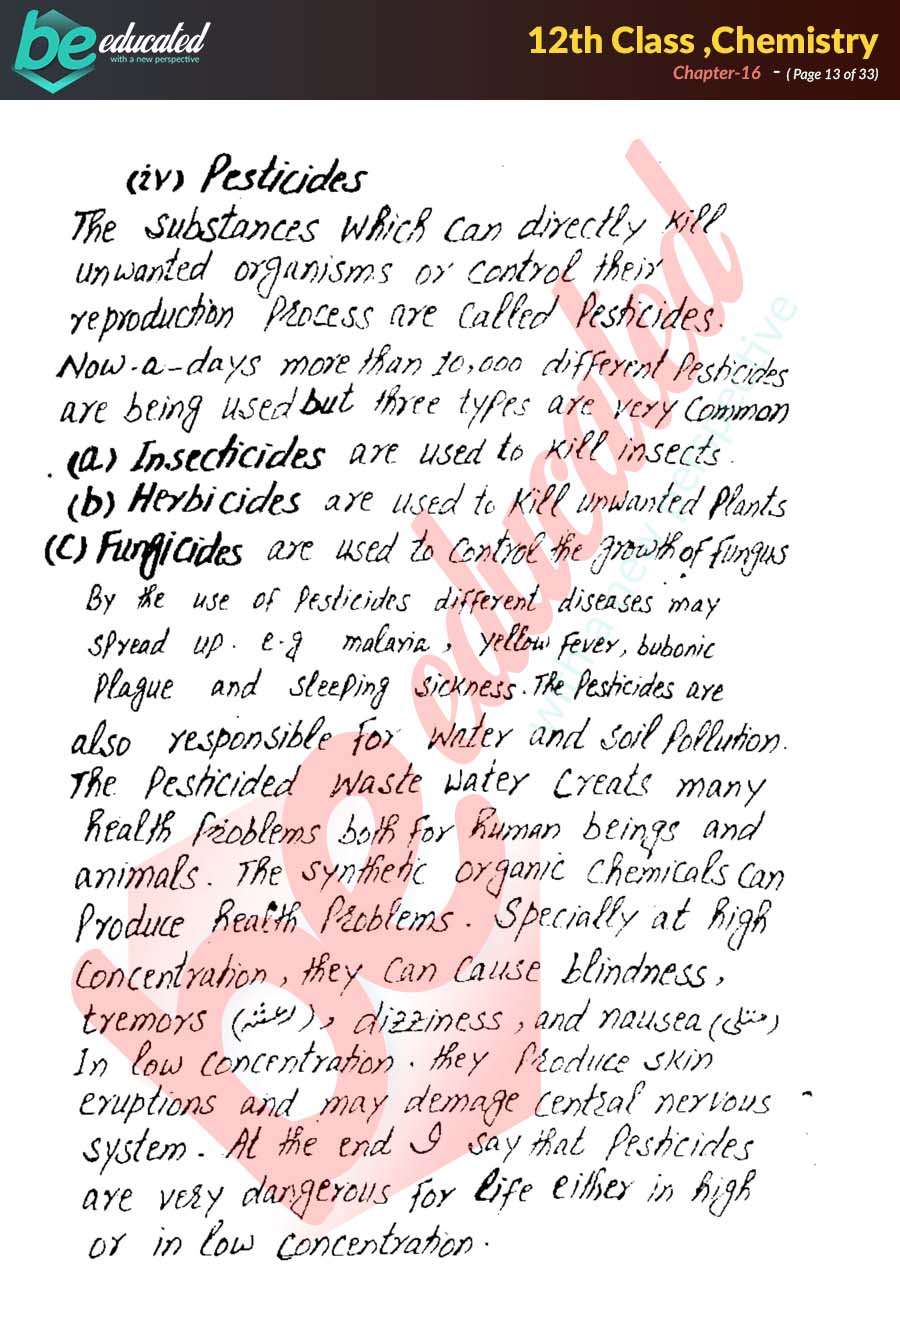 be educated
with a new perspective
12th Class ,Chemistry
Chapter-16 - ( Page 13 of 33)
(iv) Pesticides
The substances which can directly kill
unwanted organisms or control their
reproduction process are called Pesticides.
Now-a-days more than 10,000 different Pesticides
are being used but three types are very common
(a) Insecticides are used to kill insects.
(b) Herbicides are used to kill unwanted Plants
(C) Fungicides are used to control the growth of fungus
By the use of Pesticides different diseases may
spread up. e.g malaria, yellow fever, bubonic
Plague and sleeping sickness. The Pesticides are
also responsible for water and soil Pollution.
The Pesticided waste water creats many
health Problems both for human beings and
animals. The synthetic organic chemicals can
Produce health Problems. Specially at high
concentration, they can cause blindness,
tremors (رعشہ), dizziness, and nausea (متلی)
In low concentration. they Produce skin
eruptions and may demage central nervous
system. At the end I say that Pesticides
are very dangerous for life either in high
or in low concentration.
be educated
with a new perspective